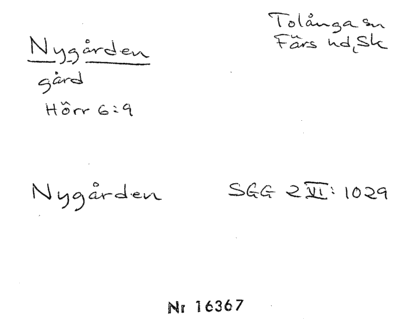 Tolånga sn
Färs hd, Sk
Nygården
gård
Hörr 6:9
Nygården SGG 2 VI: 1029
Nr 16367